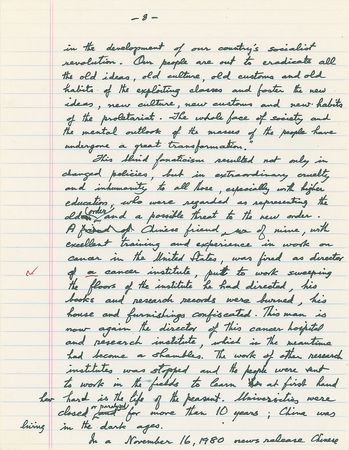 - 8 -
in the development of our country's socialist
revolution. Our people are out to eradicate all
the old ideas, old culture, old customs and old
habits of the exploiting classes and foster the new
ideas, new culture, new customs and new habits
of the proletariat. The whole face of society and
the mental outlook of the masses of the people have
undergone a great transformation."
This blind fanaticism resulted not only in
changed policies, but in extraordinary cruelty
and inhumanity to all those, especially with higher
education, who were regarded as representing the
older order and a possible threat to the new order.
A Chinese friend of mine, with
excellent training and experience in work on
cancer in the United States, was fired as director
of a cancer institute, put to work sweeping
the floors of the institute he had directed, his
books and research records were burned, his
house and furnishings confiscated. This man is
now again the director of this cancer hospital
and research institute, which in the meantime
had become a shambles. The work of other research
institutes was stopped and the people were sent
to work in the fields to learn at first hand
how hard is the life of the peasant. Universities were
closed or paralyzed for more than 10 years; China was
living in the dark ages.
In a November 16, 1980 news release Chinese